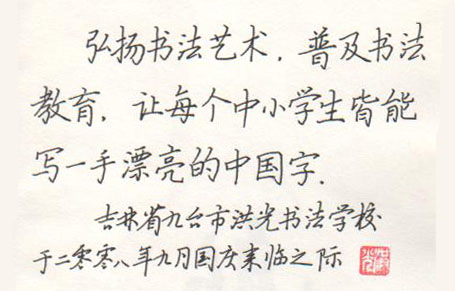 弘扬书法艺术，普及书法
教育，让每个中小学生皆能
写一手漂亮的中国字.
吉林省九台市洪光书法学校
于二零零八年九月国庆来临之际